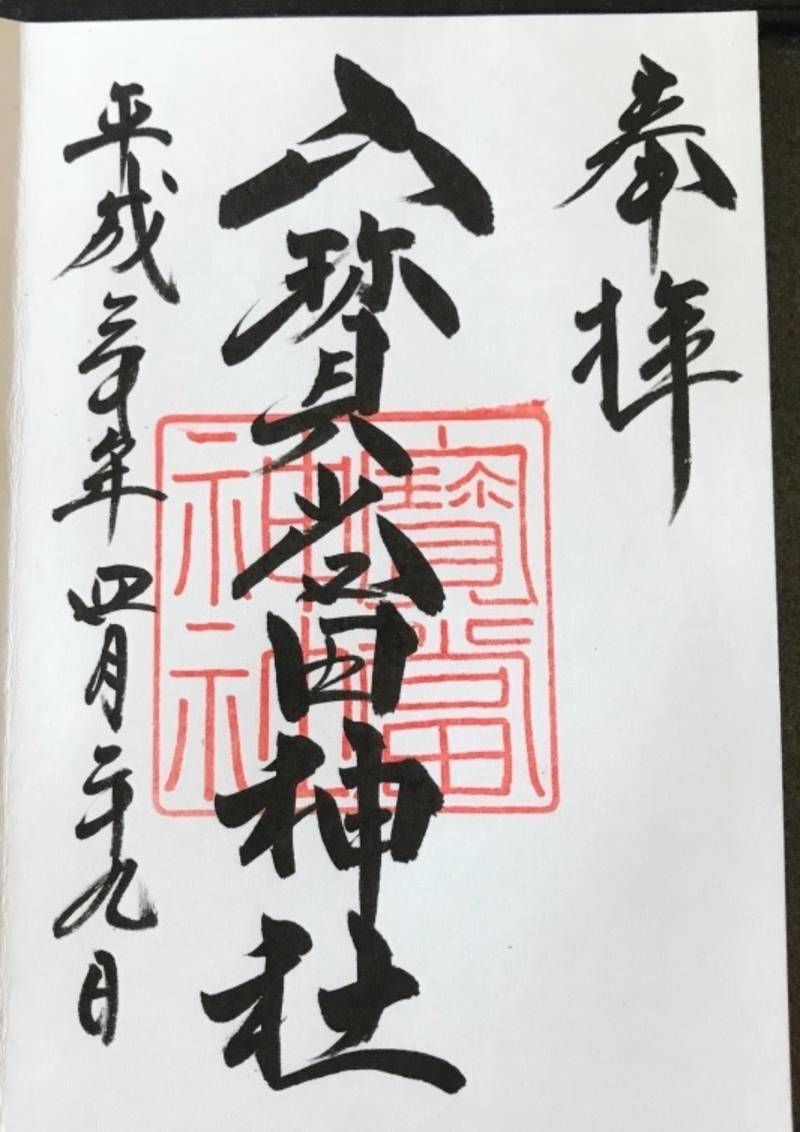 奉拝
寳當神社
平成三十年四月二十九日
寳當
神社